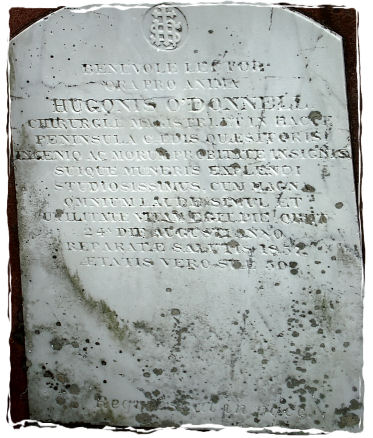 BENEVOLE LECTOR
ORA PRO ANIMA
HUGONIS O'DONNELL
CHIRURGIÆ MAGISTRI ET IN HACCE
PENINSULA CÆDIS QUÆSITORIS
INGENIO AC MORUM PROBITATE INSIGNIS
SUIQUE MUNERIS EXPLENDI
STUDIOSISSIMUS, CUM MAGNA
OMNIUM LAUDE SIMUL ET
UTILITATE VIXIT. OBIIT
24° DIE AUGUSTI ANNO
REPARATÆ SALUTIS
ÆTATIS VERO SUÆ 50